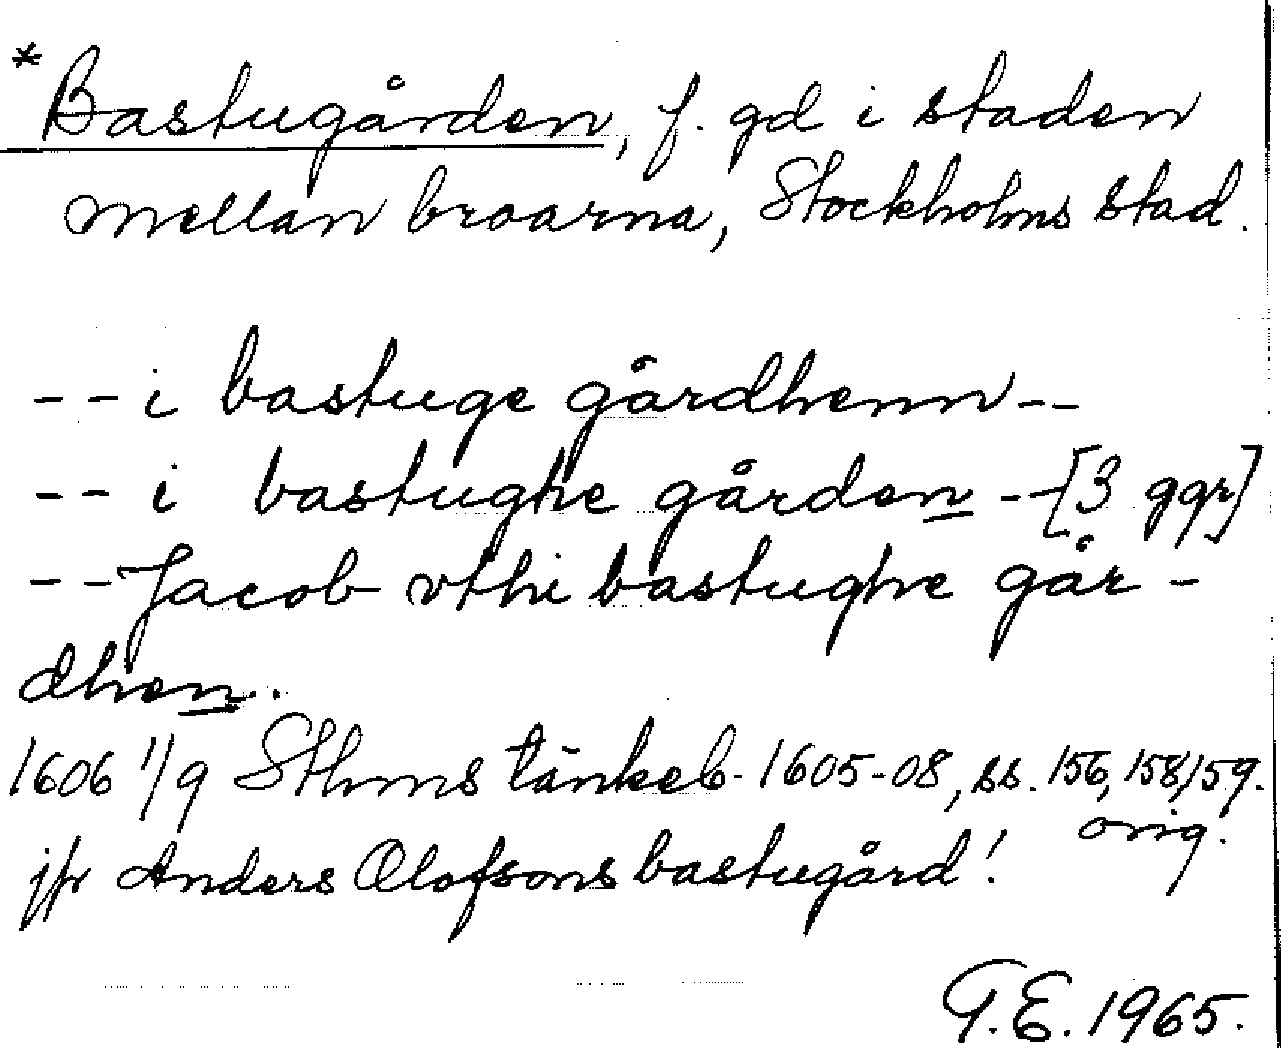 *Bastugården, f. gd i staden
mellan broarna, Stockholms stad.
-- i bastuge gårdhenn--
-- i bastughe gården --[3 ggr]
--Jacob vthi bastughe går-
dhen.
1606 1/9 Sthms tänkeb. 1605-08, ss. 156, 158, 159.
orig.
jfr Anders Olofsons bastugård!
G.E. 1965.